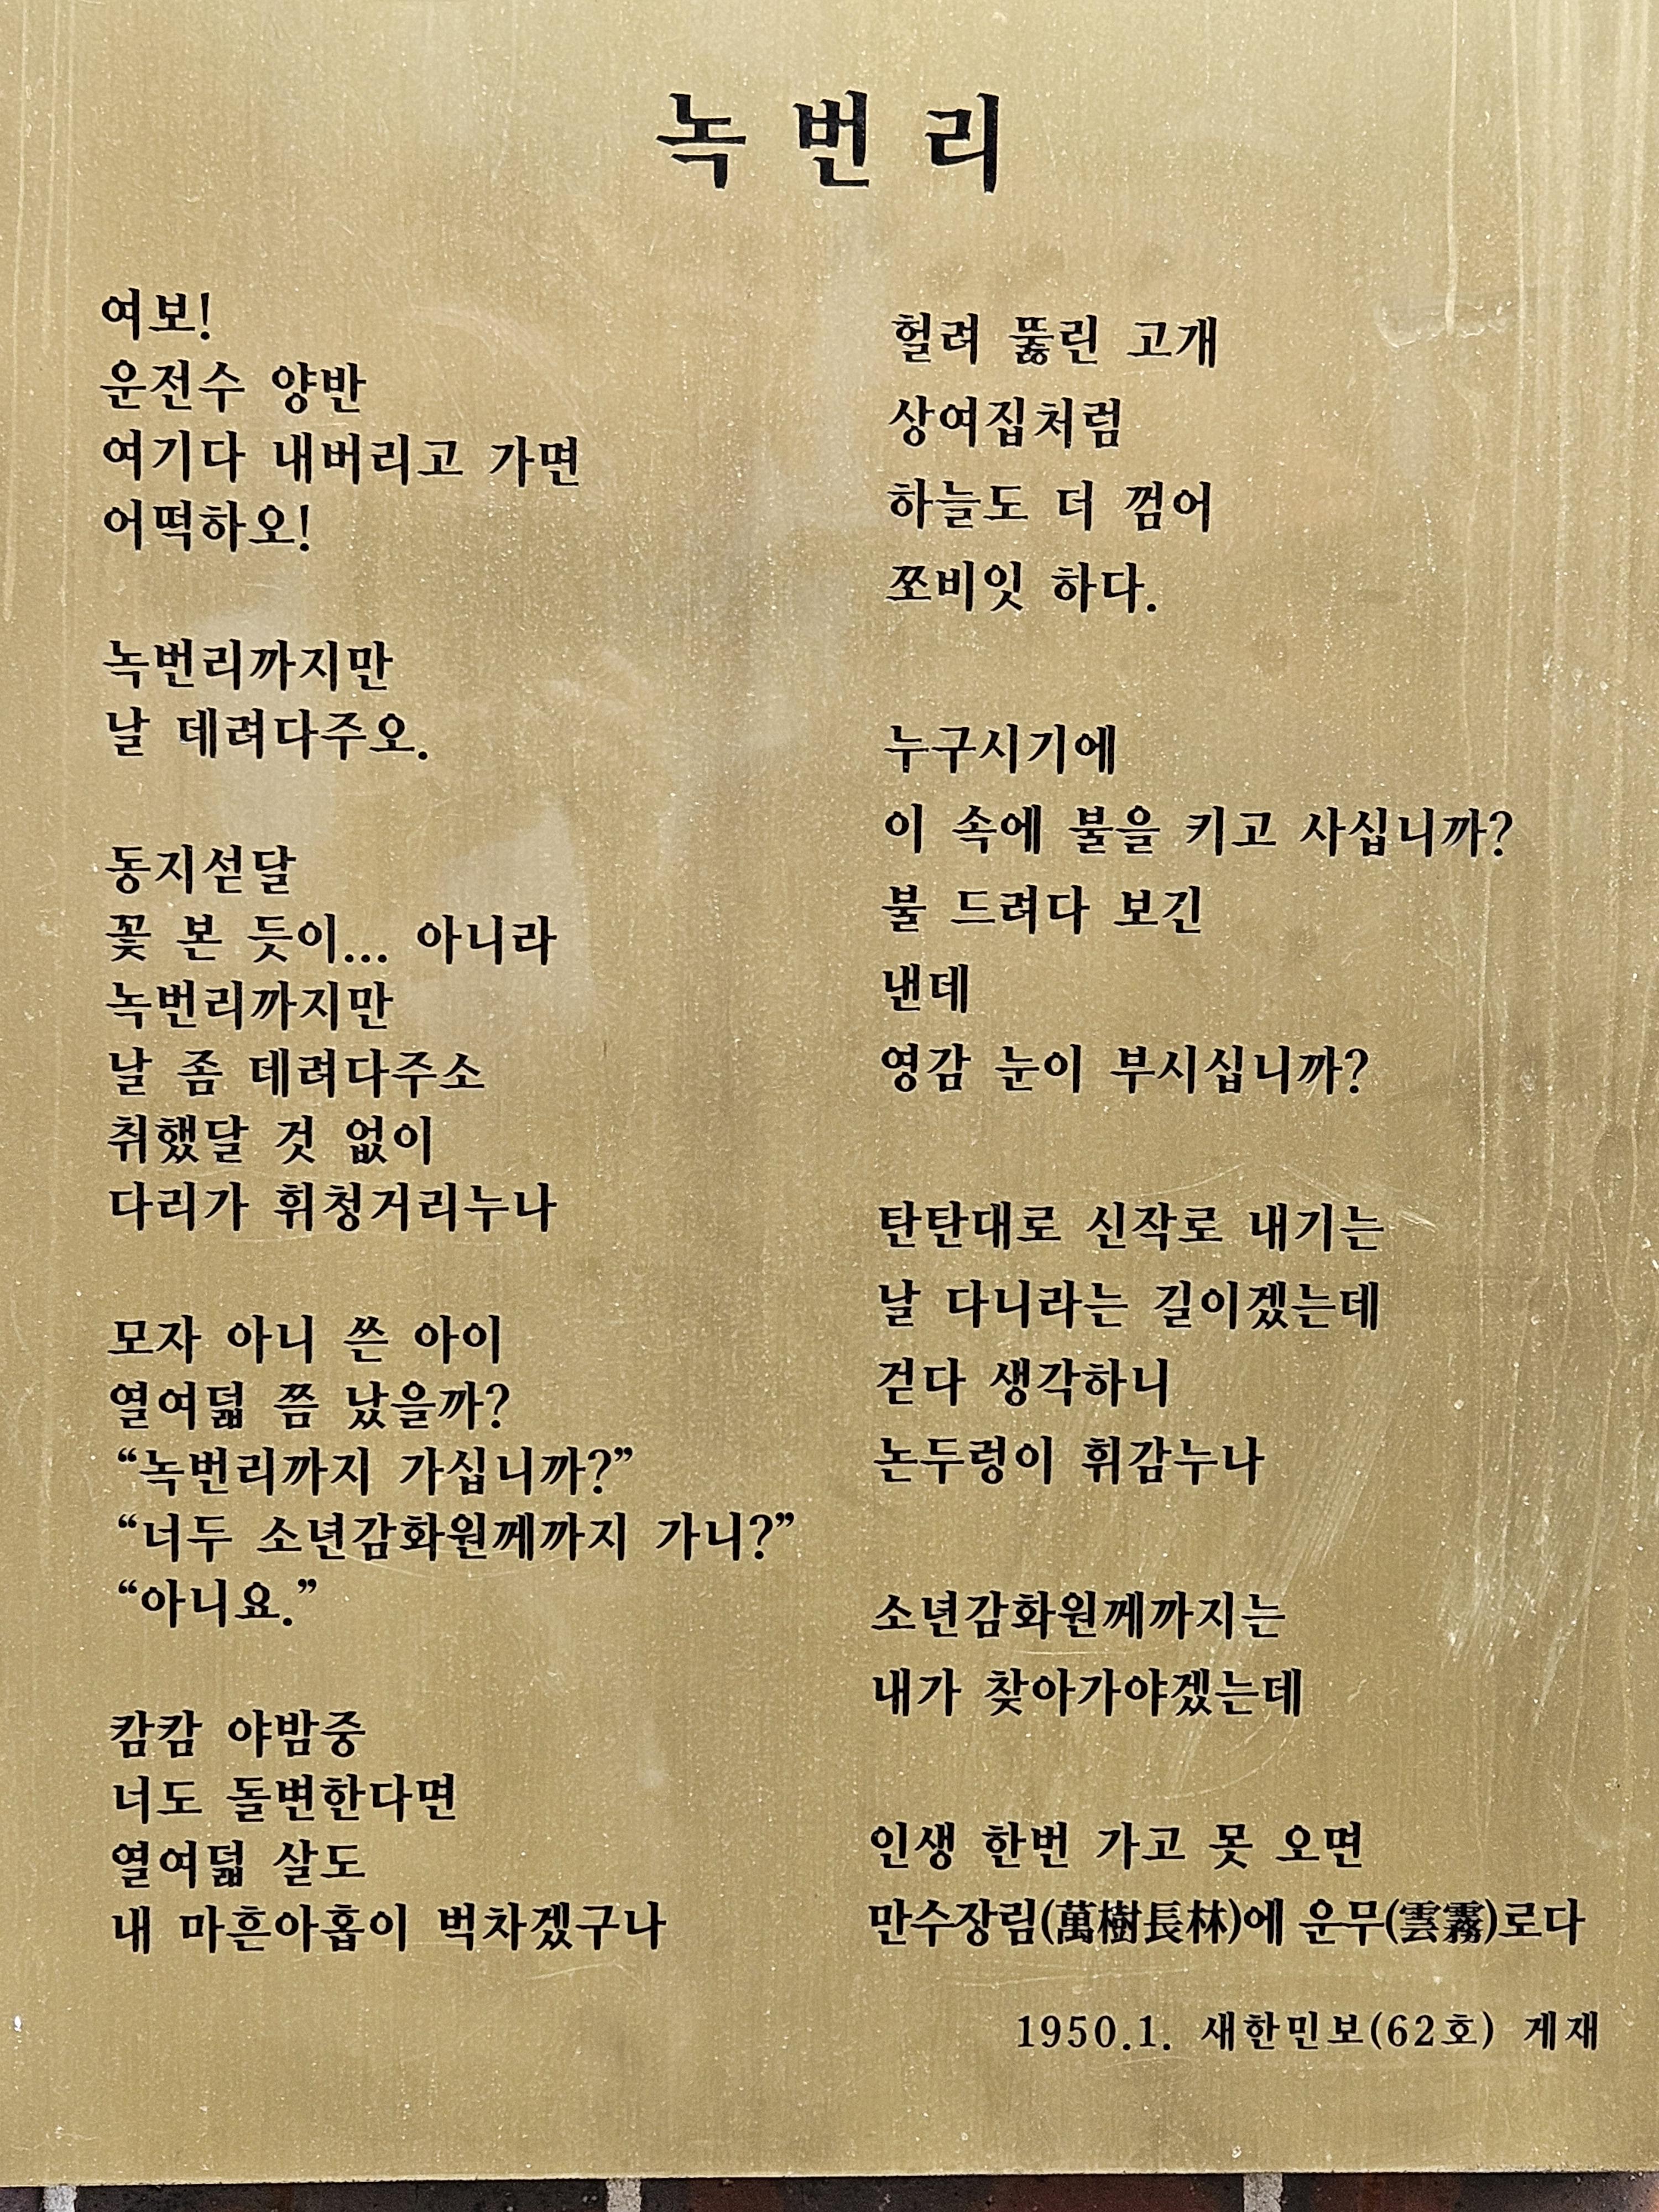 녹번리
여보!
운전수 양반
여기다 내버리고 가면
어떡하오!
녹번리까지만
날 데려다주오.
동지섣달
꽃 본 듯이... 아니라
녹번리까지만
날 좀 데려다주소
취했달 것 없이
다리가 휘청거리누나
모자 아니 쓴 아이
열여덟 쯤 났을까?
“녹번리까지 가십니까?”
“너두 소년감화원께까지 가니?”
“아니요.”
캄캄 야밤중
너도 돌변한다면
열여덟 살도
내 마흔아홉이 벅차겠구나
헐려 뚫린 고개
상여집처럼
하늘도 더 껌어
쪼비잇 하다.
누구시기에
이 속에 불을 키고 사십니까?
불 드려다 보긴
낸데
영감 눈이 부시십니까?
탄탄대로 신작로 내기는
날 다니라는 길이겠는데
걷다 생각하니
논두렁이 휘감누나
소년감화원께까지는
내가 찾아가야겠는데
인생 한번 가고 못 오면
만수장림(萬樹長林)에 운무(雲霧)로다
1950.1. 새한민보(62호) 게재